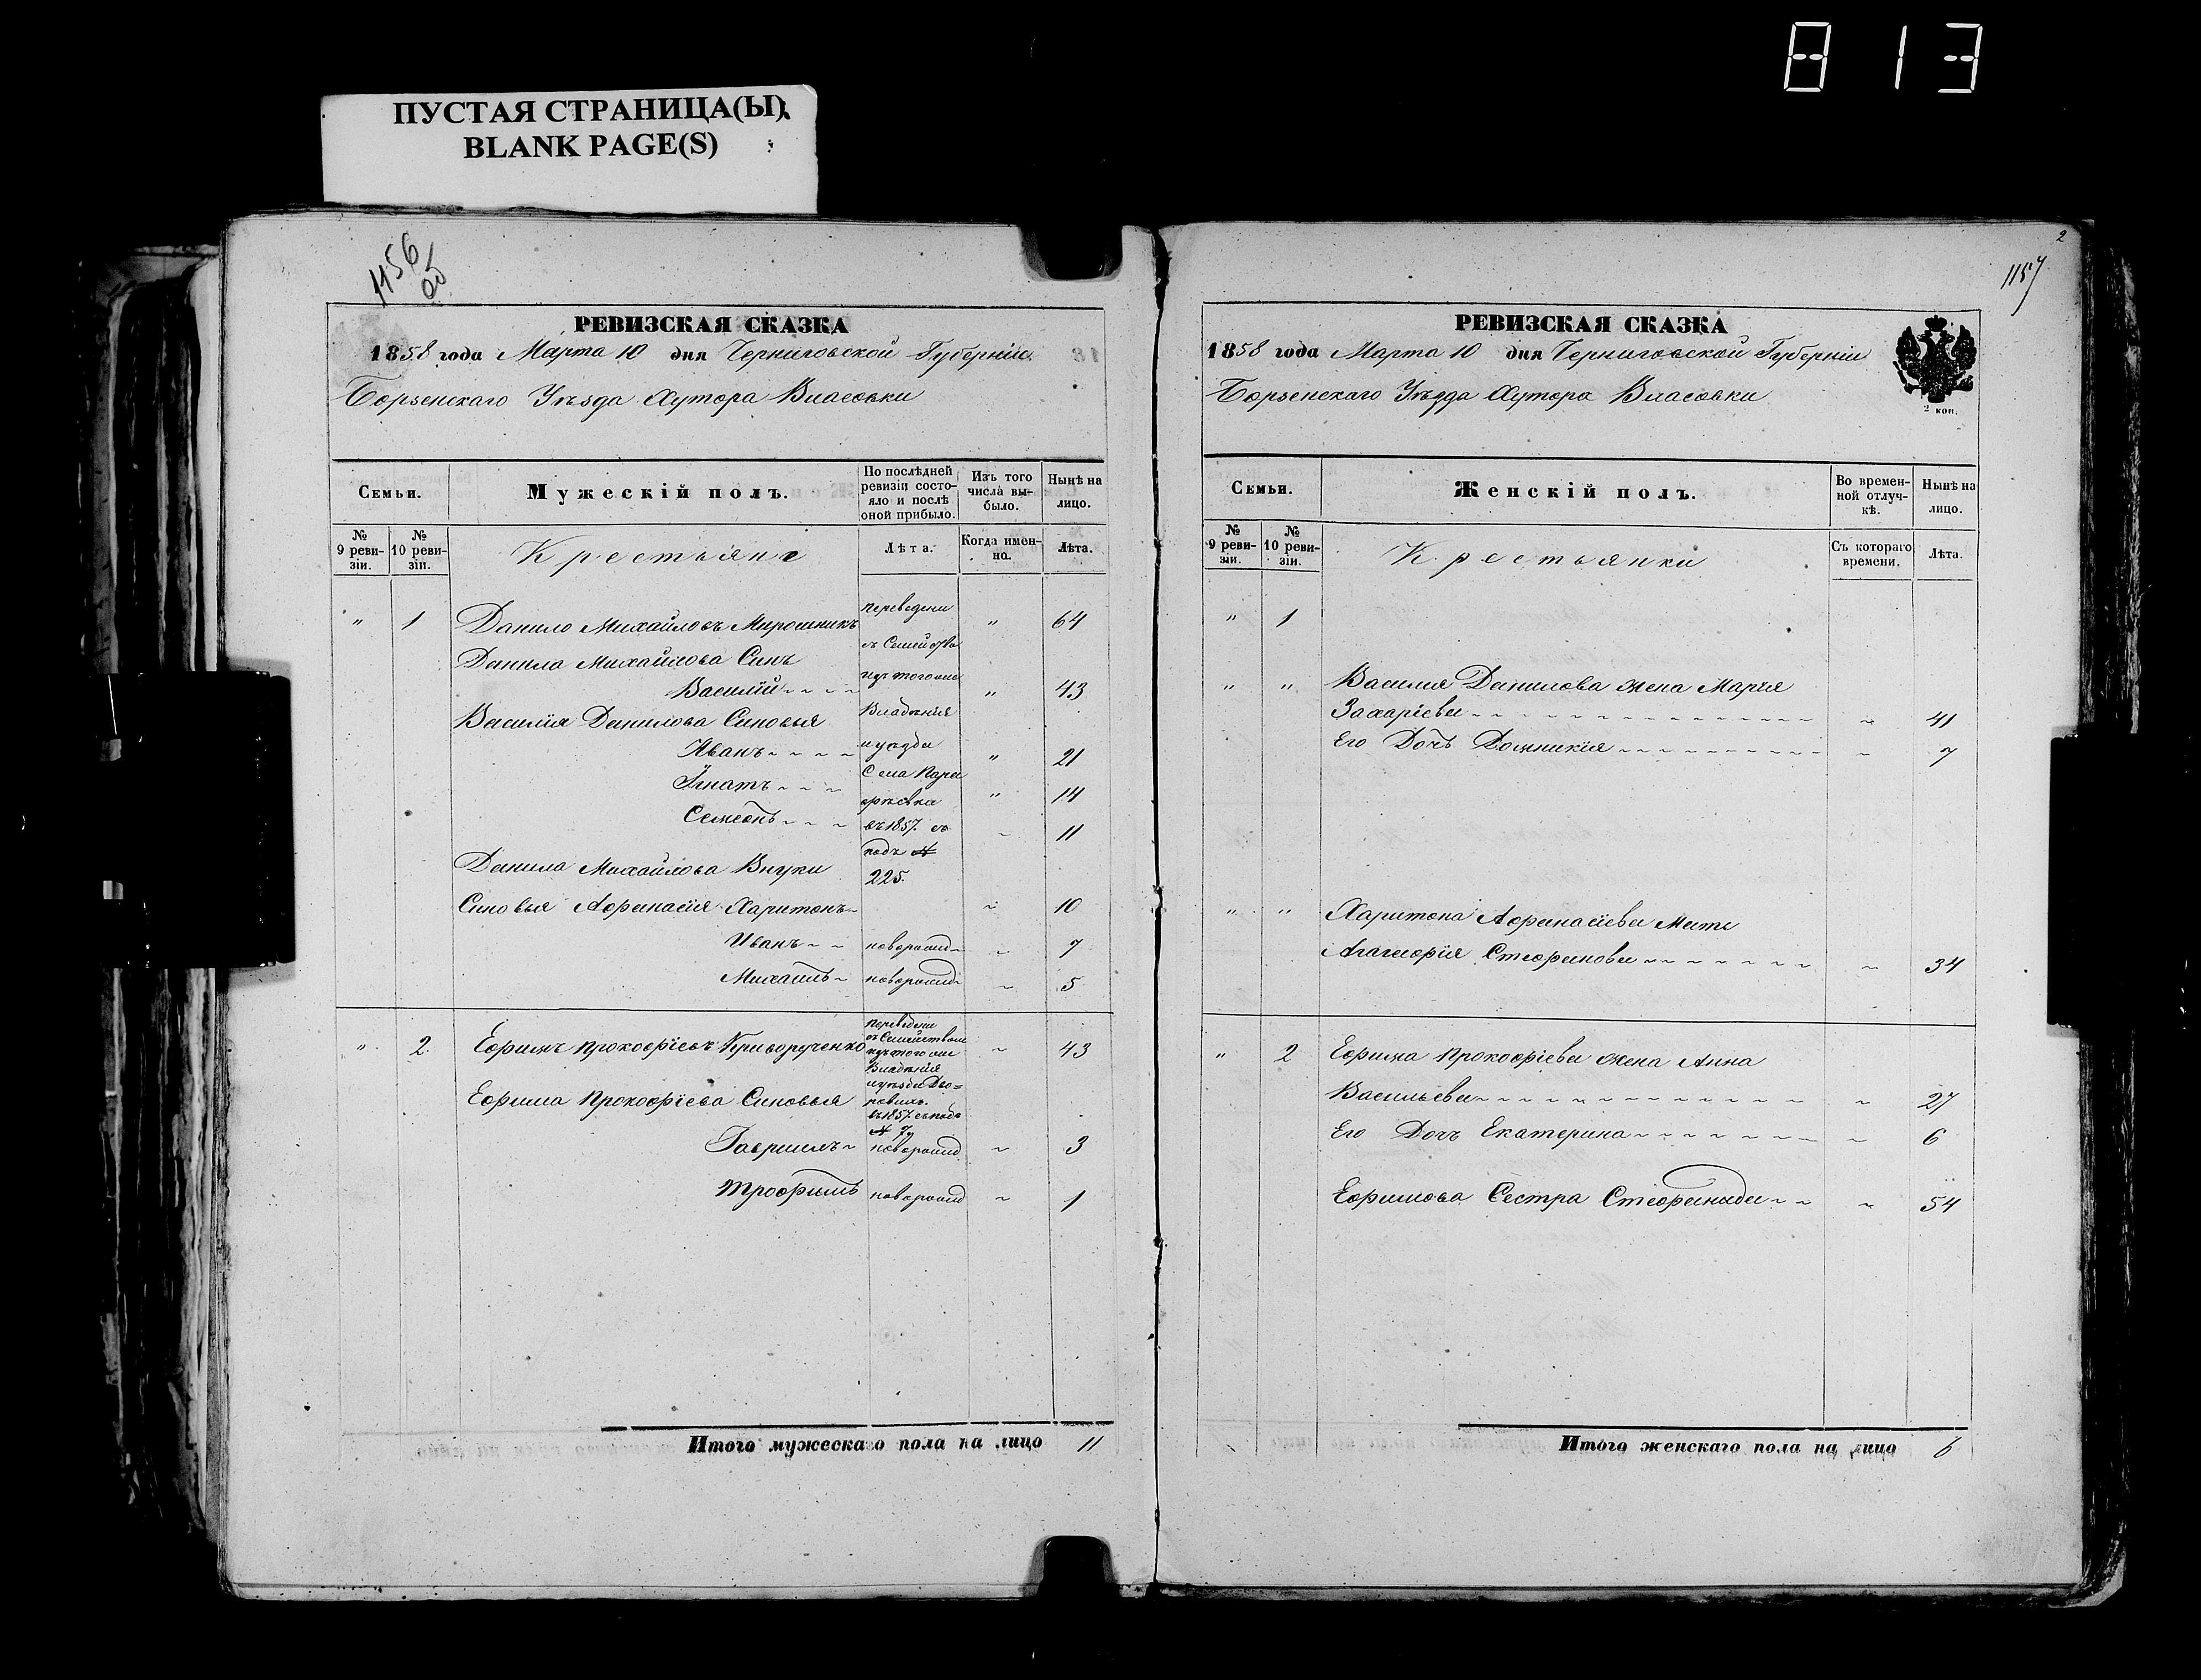 813
ПУСТАЯ СТРАНИЦА(Ы)
BLANK PAGE(S)
1156
об
РЕВИЗСКАЯ СКАЗКА
1858 года Марта 10 дня Черниговской Губерніи
Борзенскаго Уѣзда Хутора Власовки
Семьи.
Мужескій полъ.
По послѣдней ревизіи состо-
яло и послѣ
оной прибыло.
Изъ того
числа вы-
было.
Нынѣ на
лицо.
№
9 реви-
зіи.
№
10 реви-
зіи.
Крестьяне
Лѣта.
Когда имен-
но.
Лѣта.
" 1 Данило Михайловъ Мирошникъ " 64
переведени
съ Семейства
изъ того ли
Владѣнія
и уѣзда
Села
въ 1857. съ
подъ №
225.
Данила Михайлова Синъ
Василій " 43
Василія Данилова Синовья
Иванъ " 21
Игнатъ " 14
Семенъ 11
Данила Михайлова Внуки
Синовья Афанасія Харитонъ 10
Иванъ новорожд 7
Михаилъ новорожд 5
" 2. Ефимъ Прокофіевъ Криворученко 43
переведени
съ Семействами
изъ того ли
Владѣнія
и уѣзда
въ 1857. съ подъ
№
Ефима Прокофіева Синовья
Гавриилъ новорожд 3
Трофимъ новорожд 1
Итого мужескаго пола на лицо 11
2
1157
РЕВИЗСКАЯ СКАЗКА
1858 года Марта 10 дня Черниговской Губерніи
Борзенскаго Уѣзда Хутора Власовки
2 коп.
Семьи.
Женскій полъ.
Во времен-
ной отлуч-
кѣ.
Нынѣ на
лицо.
№
9 реви-
зіи.
№
10 реви-
зіи.
Крестьянки
Съ котораго
времени.
Лѣта.
" 1
" " Василія Данилова жена Марія
Захаріева 41
Его Дочь Домникія 7
" " Харитона Афанасіева Мать
Агафія Стефанова 34
" 2 Ефима Прокофіева жена Анна
Васильева 27
Его Дочь Екатерина 6
Ефимова Сестра Стефанида 54
Итого женскаго пола на лицо 6